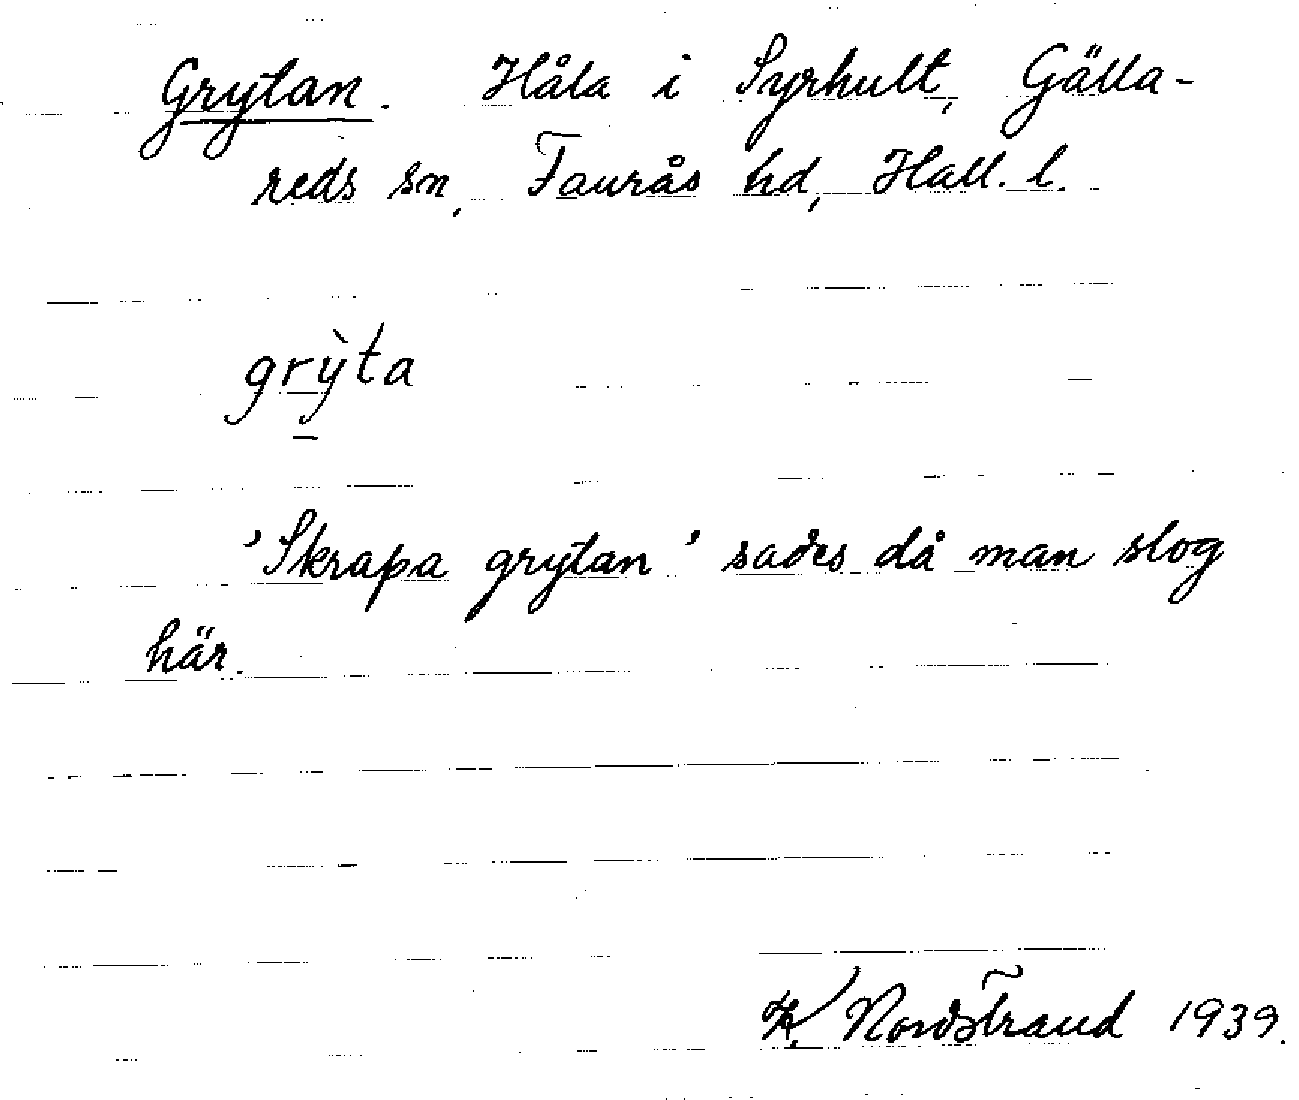 Grytan. Håla i Syrhult, Gälla-
reds sn, Faurås hd, Hall. l.
grỳta
'Skrapa grytan' sades då man slog
här.
K. Nordstrand 1939.